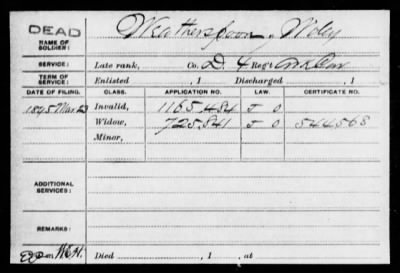 DEAD
NAME OF SOLDIER: Weatherspoon, Wiley
SERVICE: Late rank, Co. D, 4 Reg't Ark Cav
TERM OF SERVICE: Enlisted , 1 Discharged , 1
DATE OF FILING. CLASS. APPLICATION NO. LAW. CERTIFICATE NO.
1895 Mar Invalid, 1165.484 J O
Widow, 725.841 J O 544568
Minor,
ADDITIONAL SERVICES:
REMARKS:
Died , 1 , at